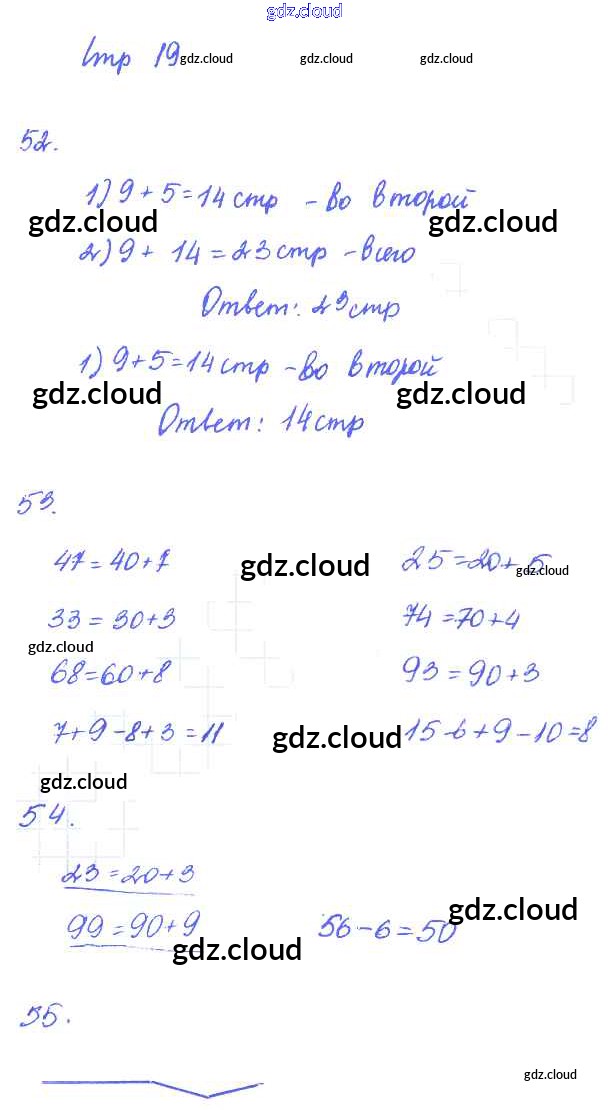 gdz.cloud
Стр 19 gdz.cloud gdz.cloud gdz.cloud
52.
1) 9 + 5 = 14 стр - во второй
gdz.cloud gdz.cloud
2) 9 + 14 = 23 стр - всего
Ответ: 23 стр
1) 9 + 5 = 14 стр - во второй
gdz.cloud gdz.cloud
Ответ: 14 стр
53.
47 = 40 + 7 gdz.cloud 25 = 20 + 5
gdz.cloud
33 = 30 + 3 74 = 70 + 4
gdz.cloud
68 = 60 + 8 93 = 90 + 3
7 + 9 - 8 + 3 = 11 gdz.cloud 15 - 6 + 9 - 10 = 8
gdz.cloud
54.
23 = 20 + 3
99 = 90 + 9 56 - 6 = 50 gdz.cloud
gdz.cloud
55.
gdz.cloud